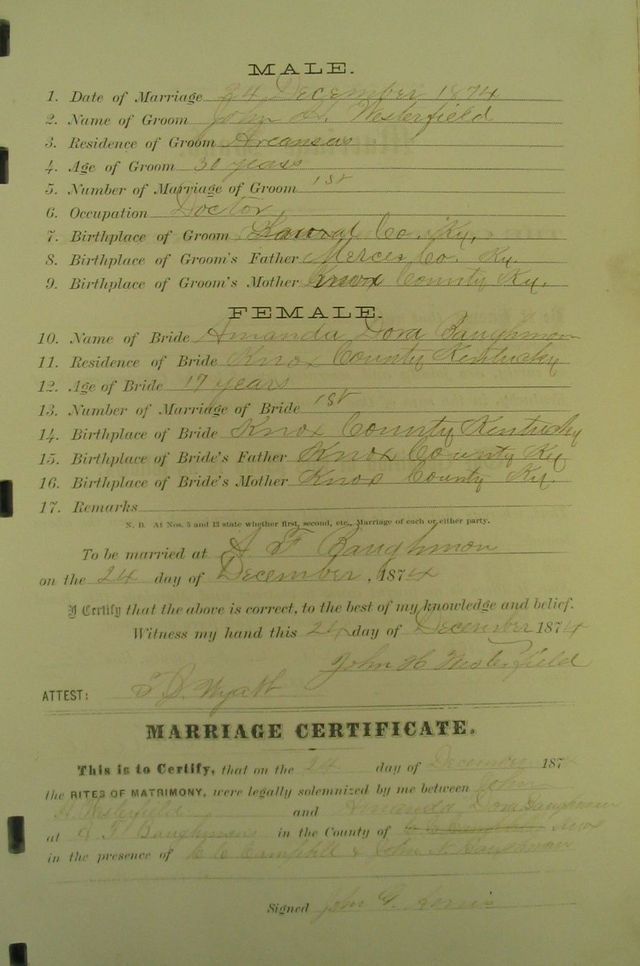 MALE.
1. Date of Marriage 24 December 1874
2. Name of Groom John H. Westerfield
3. Residence of Groom Arcansas
4. Age of Groom 30 years
5. Number of Marriage of Groom 1st
6. Occupation Doctor
7. Birthplace of Groom Laurel Co. Ky.
8. Birthplace of Groom's Father Mercer Co. Ky.
9. Birthplace of Groom's Mother Knox County Ky.
FEMALE.
10. Name of Bride Amanda Dora Baughmon
11. Residence of Bride Knox County Kentucky
12. Age of Bride 17 years
13. Number of Marriage of Bride 1st
14. Birthplace of Bride Knox County Kentucky
15. Birthplace of Bride's Father Knox County Ky
16. Birthplace of Bride's Mother Knox County Ky.
17. Remarks
N. B. At Nos. 5 and 13 state whether first, second, etc., Marriage of each or either party.
To be married at A F Baughmon
on the 24 day of December, 1874
I Certify that the above is correct, to the best of my knowledge and belief.
Witness my hand this 24 day of December 1874
John H Westerfield
ATTEST: Wyatt
MARRIAGE CERTIFICATE.
This is to Certify, that on the 24 day of December 1874
the RITES OF MATRIMONY, were legally solemnized by me between John
H. Westerfield and Amanda Dora Baughmon
at A F Baughmons in the County of Knox
in the presence of C C Campbell & John N Baughmon
Signed John G.